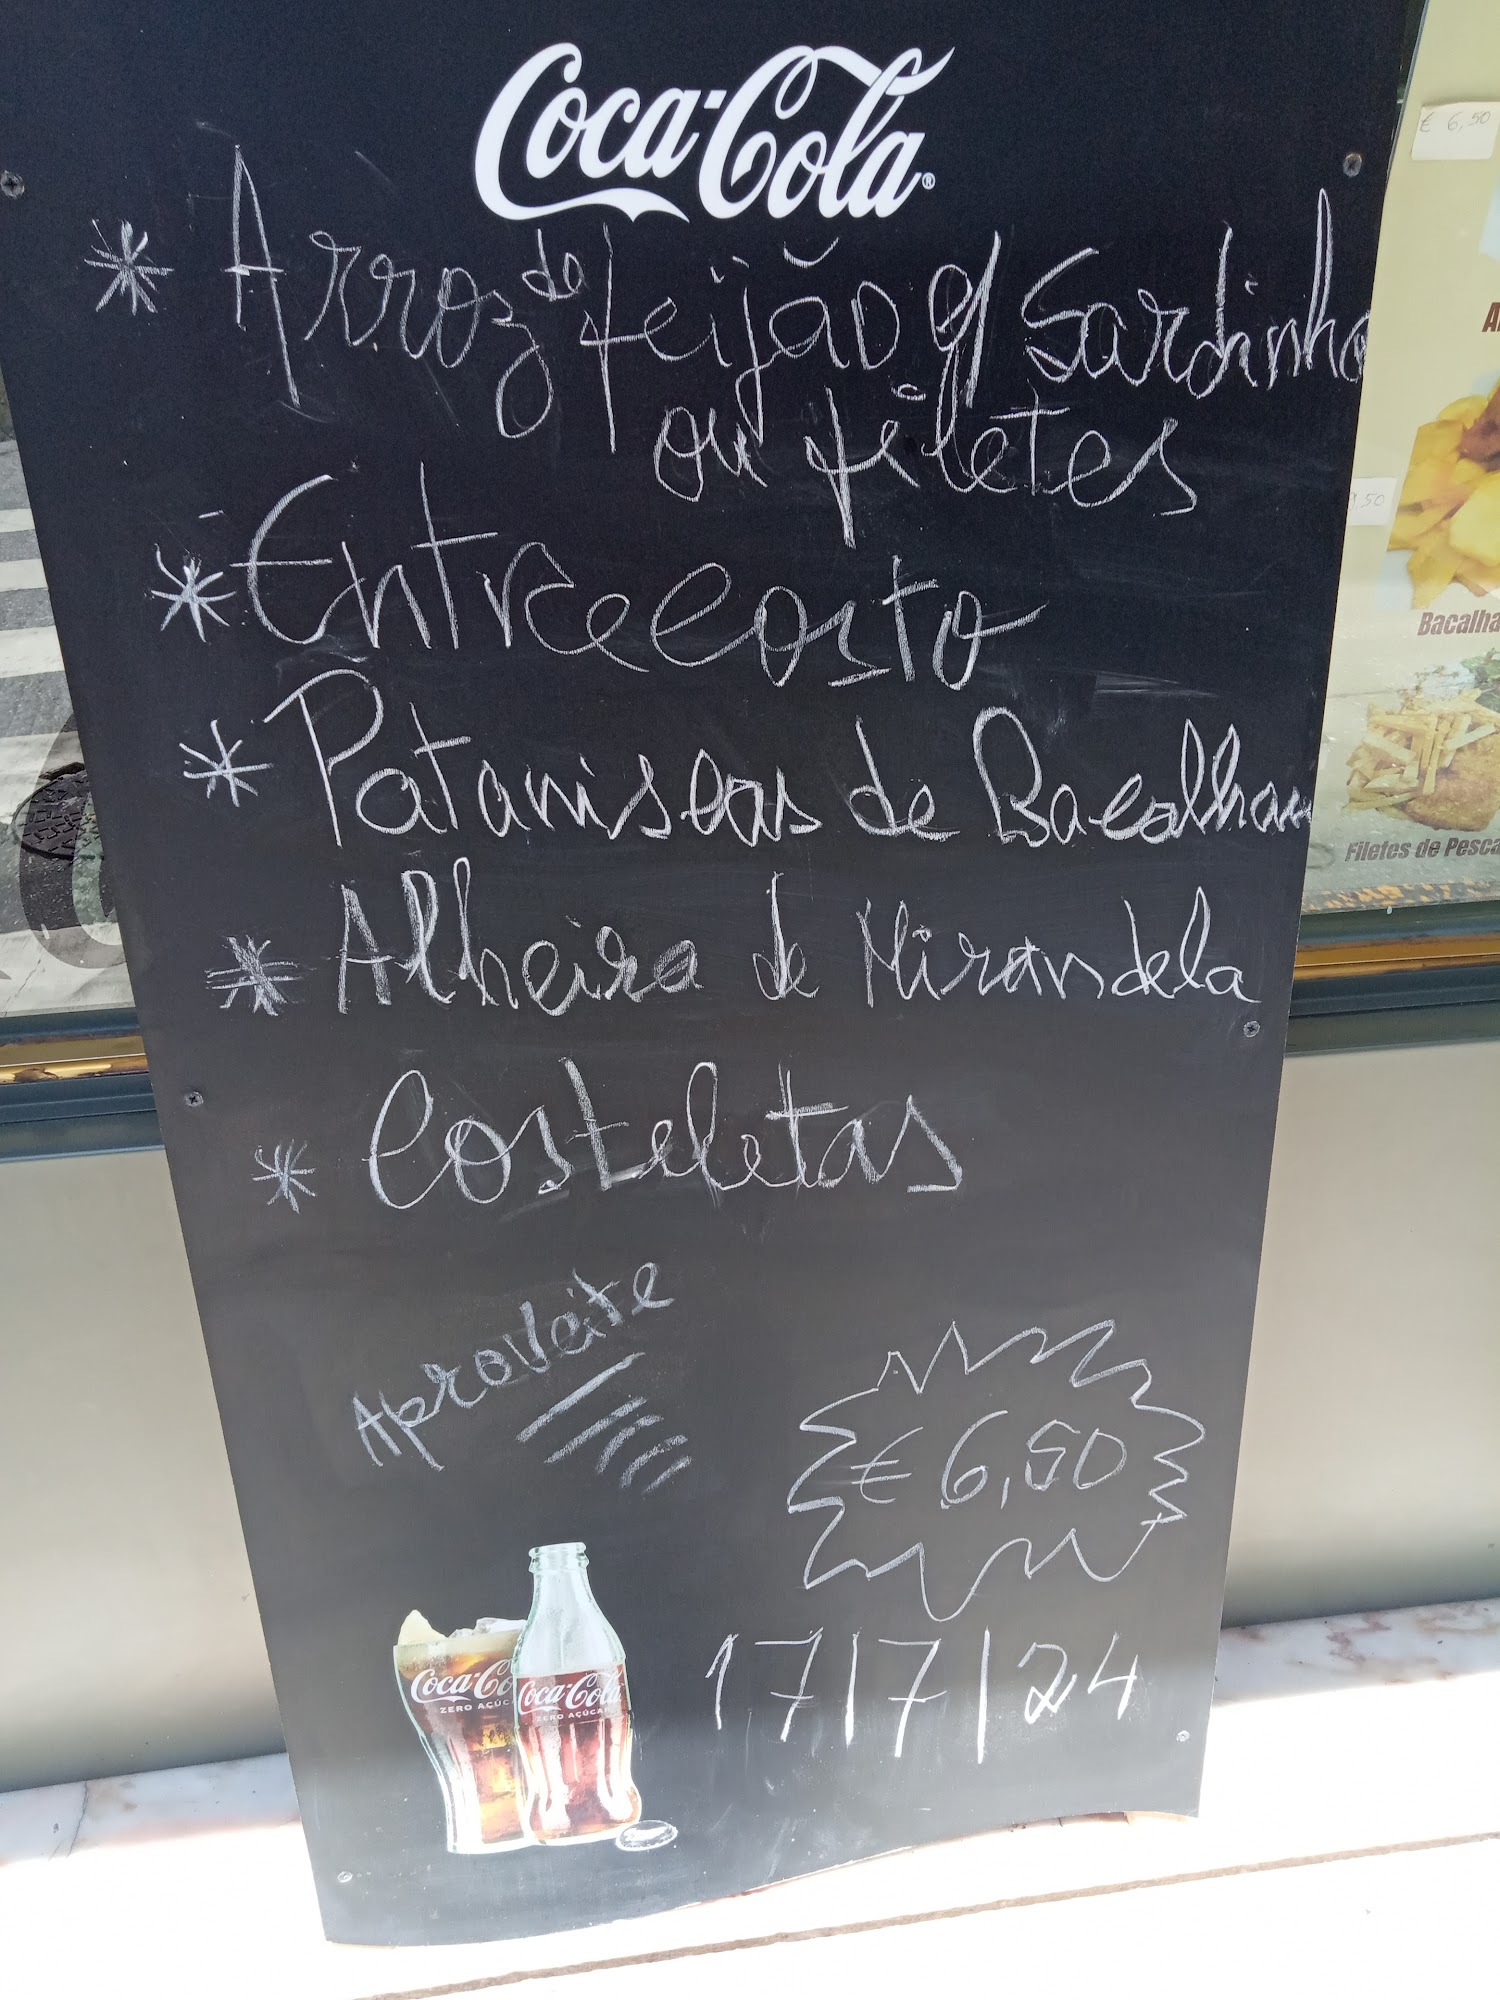 Coca-Cola®
* Arroz de feijão c/ Sardinha
ou filetes
* Entrecosto
* Pataniscas de Bacalhau
* Alheira de Mirandela
* Costeletas
Aproveite
€ 6,50
17/7/24
Coca-Co
ZERO AÇÚC
Coca-Cola
ZERO AÇÚCAR
€ 6,50
50
Bacalha
Filetes de Pesca